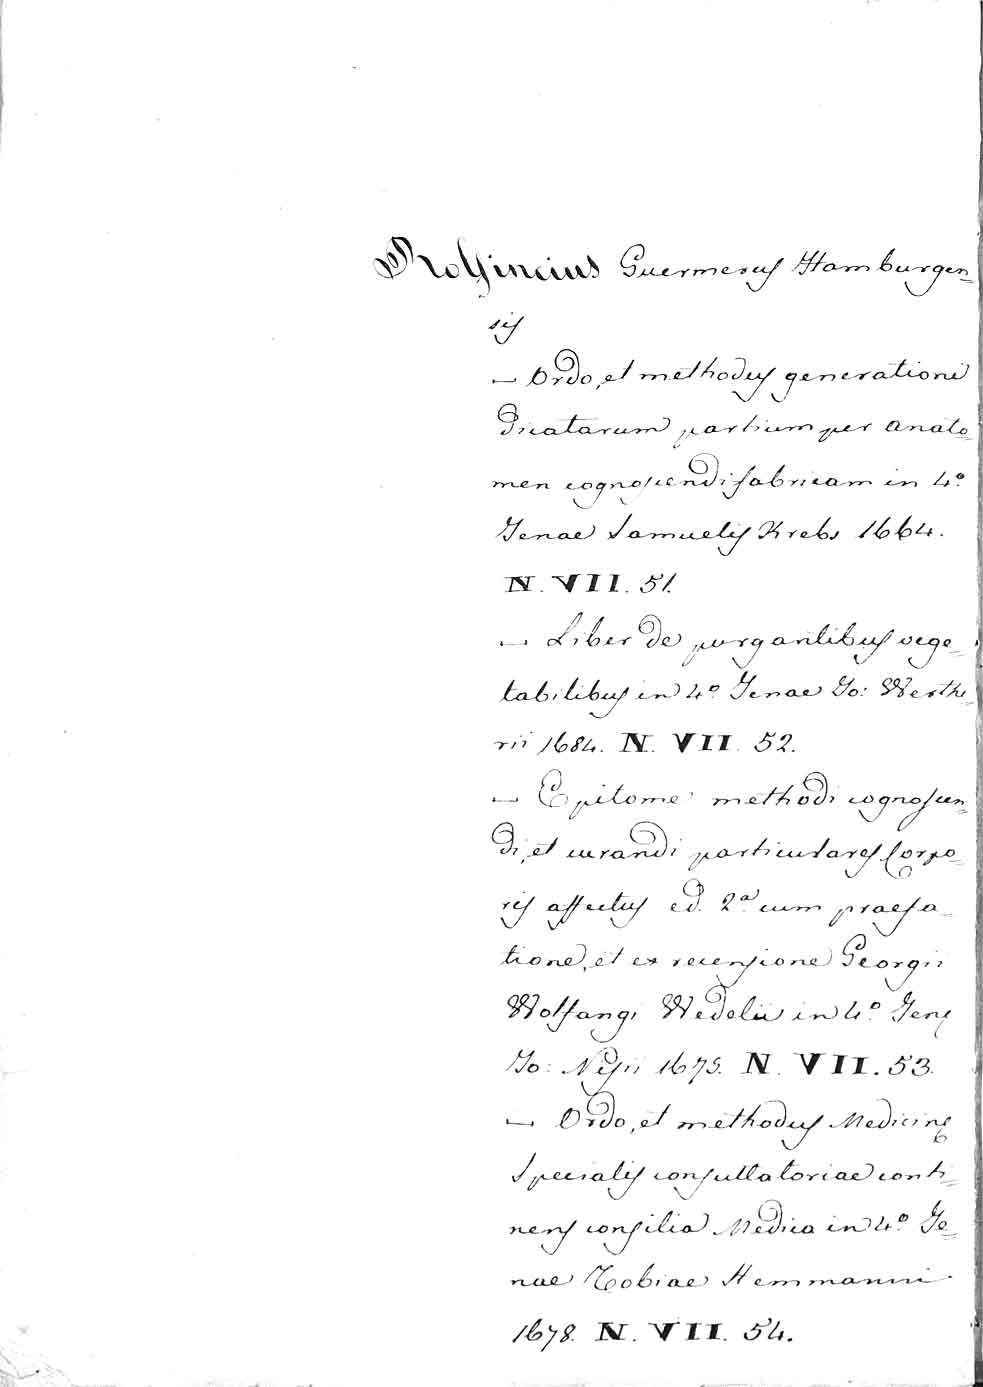 Rolfincius Guernerus Hamburgen=
sis
— Ordo, et methodus generationi
dicatarum partium per anato=
men cognoscendi fabricam in 4.º
Jenae Samuelis Krebs 1664.
N. VII. 51.
— Liber de purgantibus vege=
tabilibus in 4.º Jenae Jo: Werthe=
rii 1684. N. VII. 52.
— Epitome methodi cognoscen=
di, et curandi particulares Corpo=
ris affectus ed. 2.ª cum praefa=
tione, et ex recensione Georgii
Wolfangi Wedelii in 4.º Jenę
Jo: Nisii 1675. N. VII. 53.
— Ordo, et methodus Medicinę
Specialis consultatoriae conti=
nens consilia Medica in 4.º Je=
nae Tobiae Hemmanni
1678. N. VII. 54.